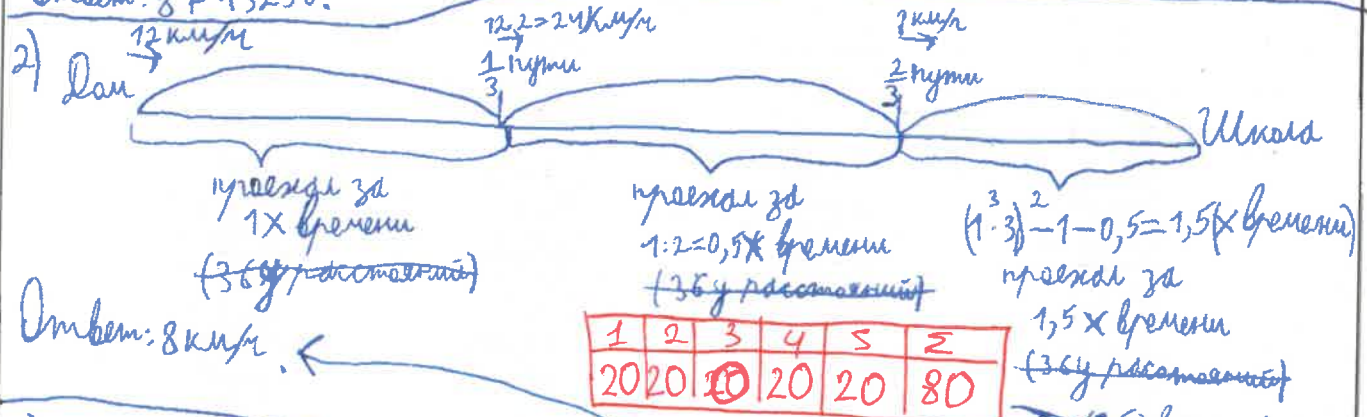 Ответ: 8
2)
12 км/ч
12·2=24 км/ч
? км/ч
Дом
1/3 пути
2/3 пути
Школа
проехал за
1X времени
(36y расстояний)
проехал за
1:2=0,5X времени
(36y расстояний)
(1·3)-1-0,5=1,5(X времени)
3 2
проехал за
1,5X времени
(36y расстояний)
Ответ: 8 км/ч.
1 2 3 4 5 Σ
20 20 0 20 20 80